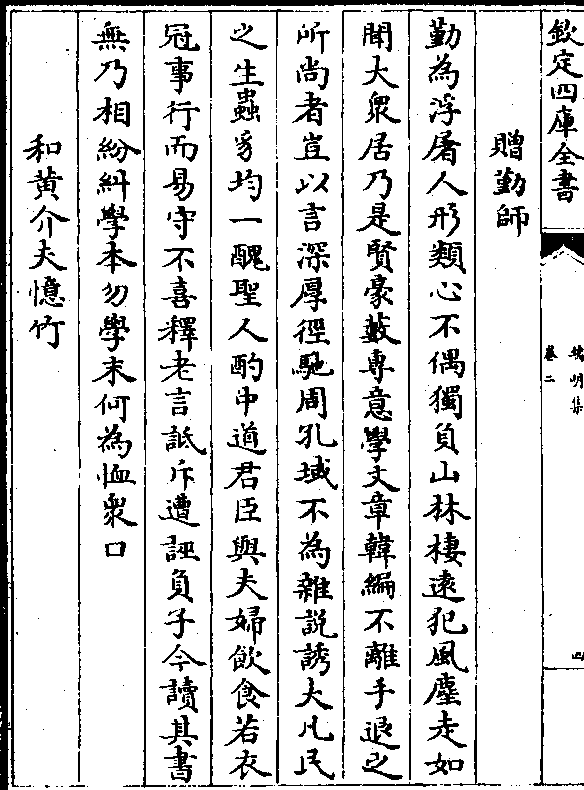 欽定四庫全書
卷二 四
贈勤師
勤為浮屠人形類心不偶獨負山林棲遠犯風塵走如
聞大衆居乃是賢豪藪專意學文章韓編不離手退之
所尚者豈以言深厚徑馳周孔域不為雜説誘大凡民
之生蟲豸均一醜聖人酌中道君臣與夫婦飲食若衣
冠事行而易守不喜釋老言詆斥遭誣負子今讀其書
無乃相紛糾學本勿學末何為恤衆口
和黄介夫憶竹